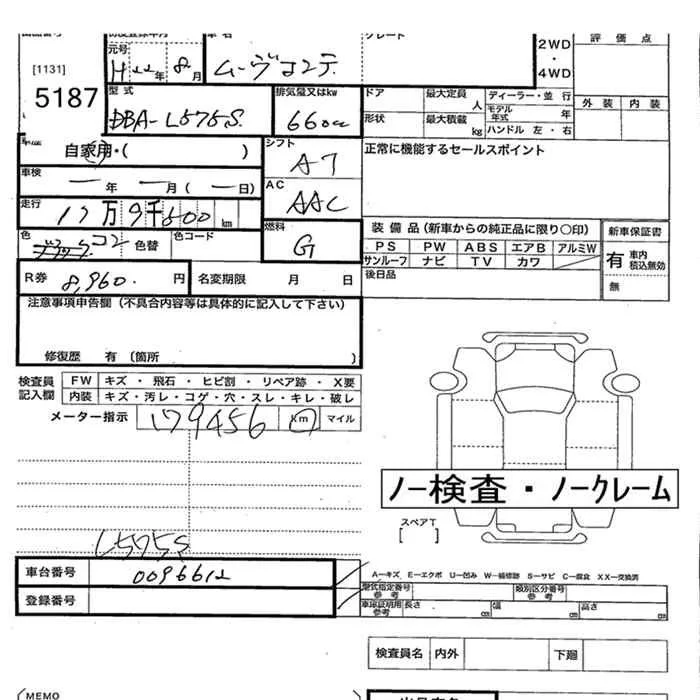 [1131]
5187
元号
H22年 8月
車名
ムーヴコンテ
グレード
2WD
・
4WD
評 価 点
外 装 内 装
型式
DBA-L575S
排気量又はkw
660cc
ドア
最大定員
人
形状
最大積載
kg
ディーラー・並 行
モデル年式
年
ハンドル 左・右
自家用・( )
シフト
AT
正常に機能するセールスポイント
車検
ー年 ー月(ー日)
AC
AAC
走行
17万9千500km
色
コン
色替
色コード
燃料
G
装 備 品 (新車からの純正品に限り○印)
PS PW ABS エアB アルミW
サンルーフ ナビ TV カワ
後日品
新車保証書
有 車内積込無効
無
R券
8,960.円
名変期限 月 日
注意事項申告欄(不具合内容等は具体的に記入して下さい)
修復歴 有 (箇所 )
検査員記入欄
FW キズ・飛石・ヒビ割・リペア跡・X要
内装 キズ・汚レ・コゲ・穴・スレ・キレ・破レ
メーター指示
179456
Km
マイル
ノー検査・ノークレーム
スペアT
[ ]
L575S
車台番号
0096612
登録番号
A―キズ E―エクボ U―凹み W―補修跡 S―サビ C―腐食 XX―交換済
型式指定番号
参 考
類別区分番号
参 考
車庫証明用
参考
長さ
cm
幅
cm
高さ
cm
検査員名 内外 下廻
MEMO